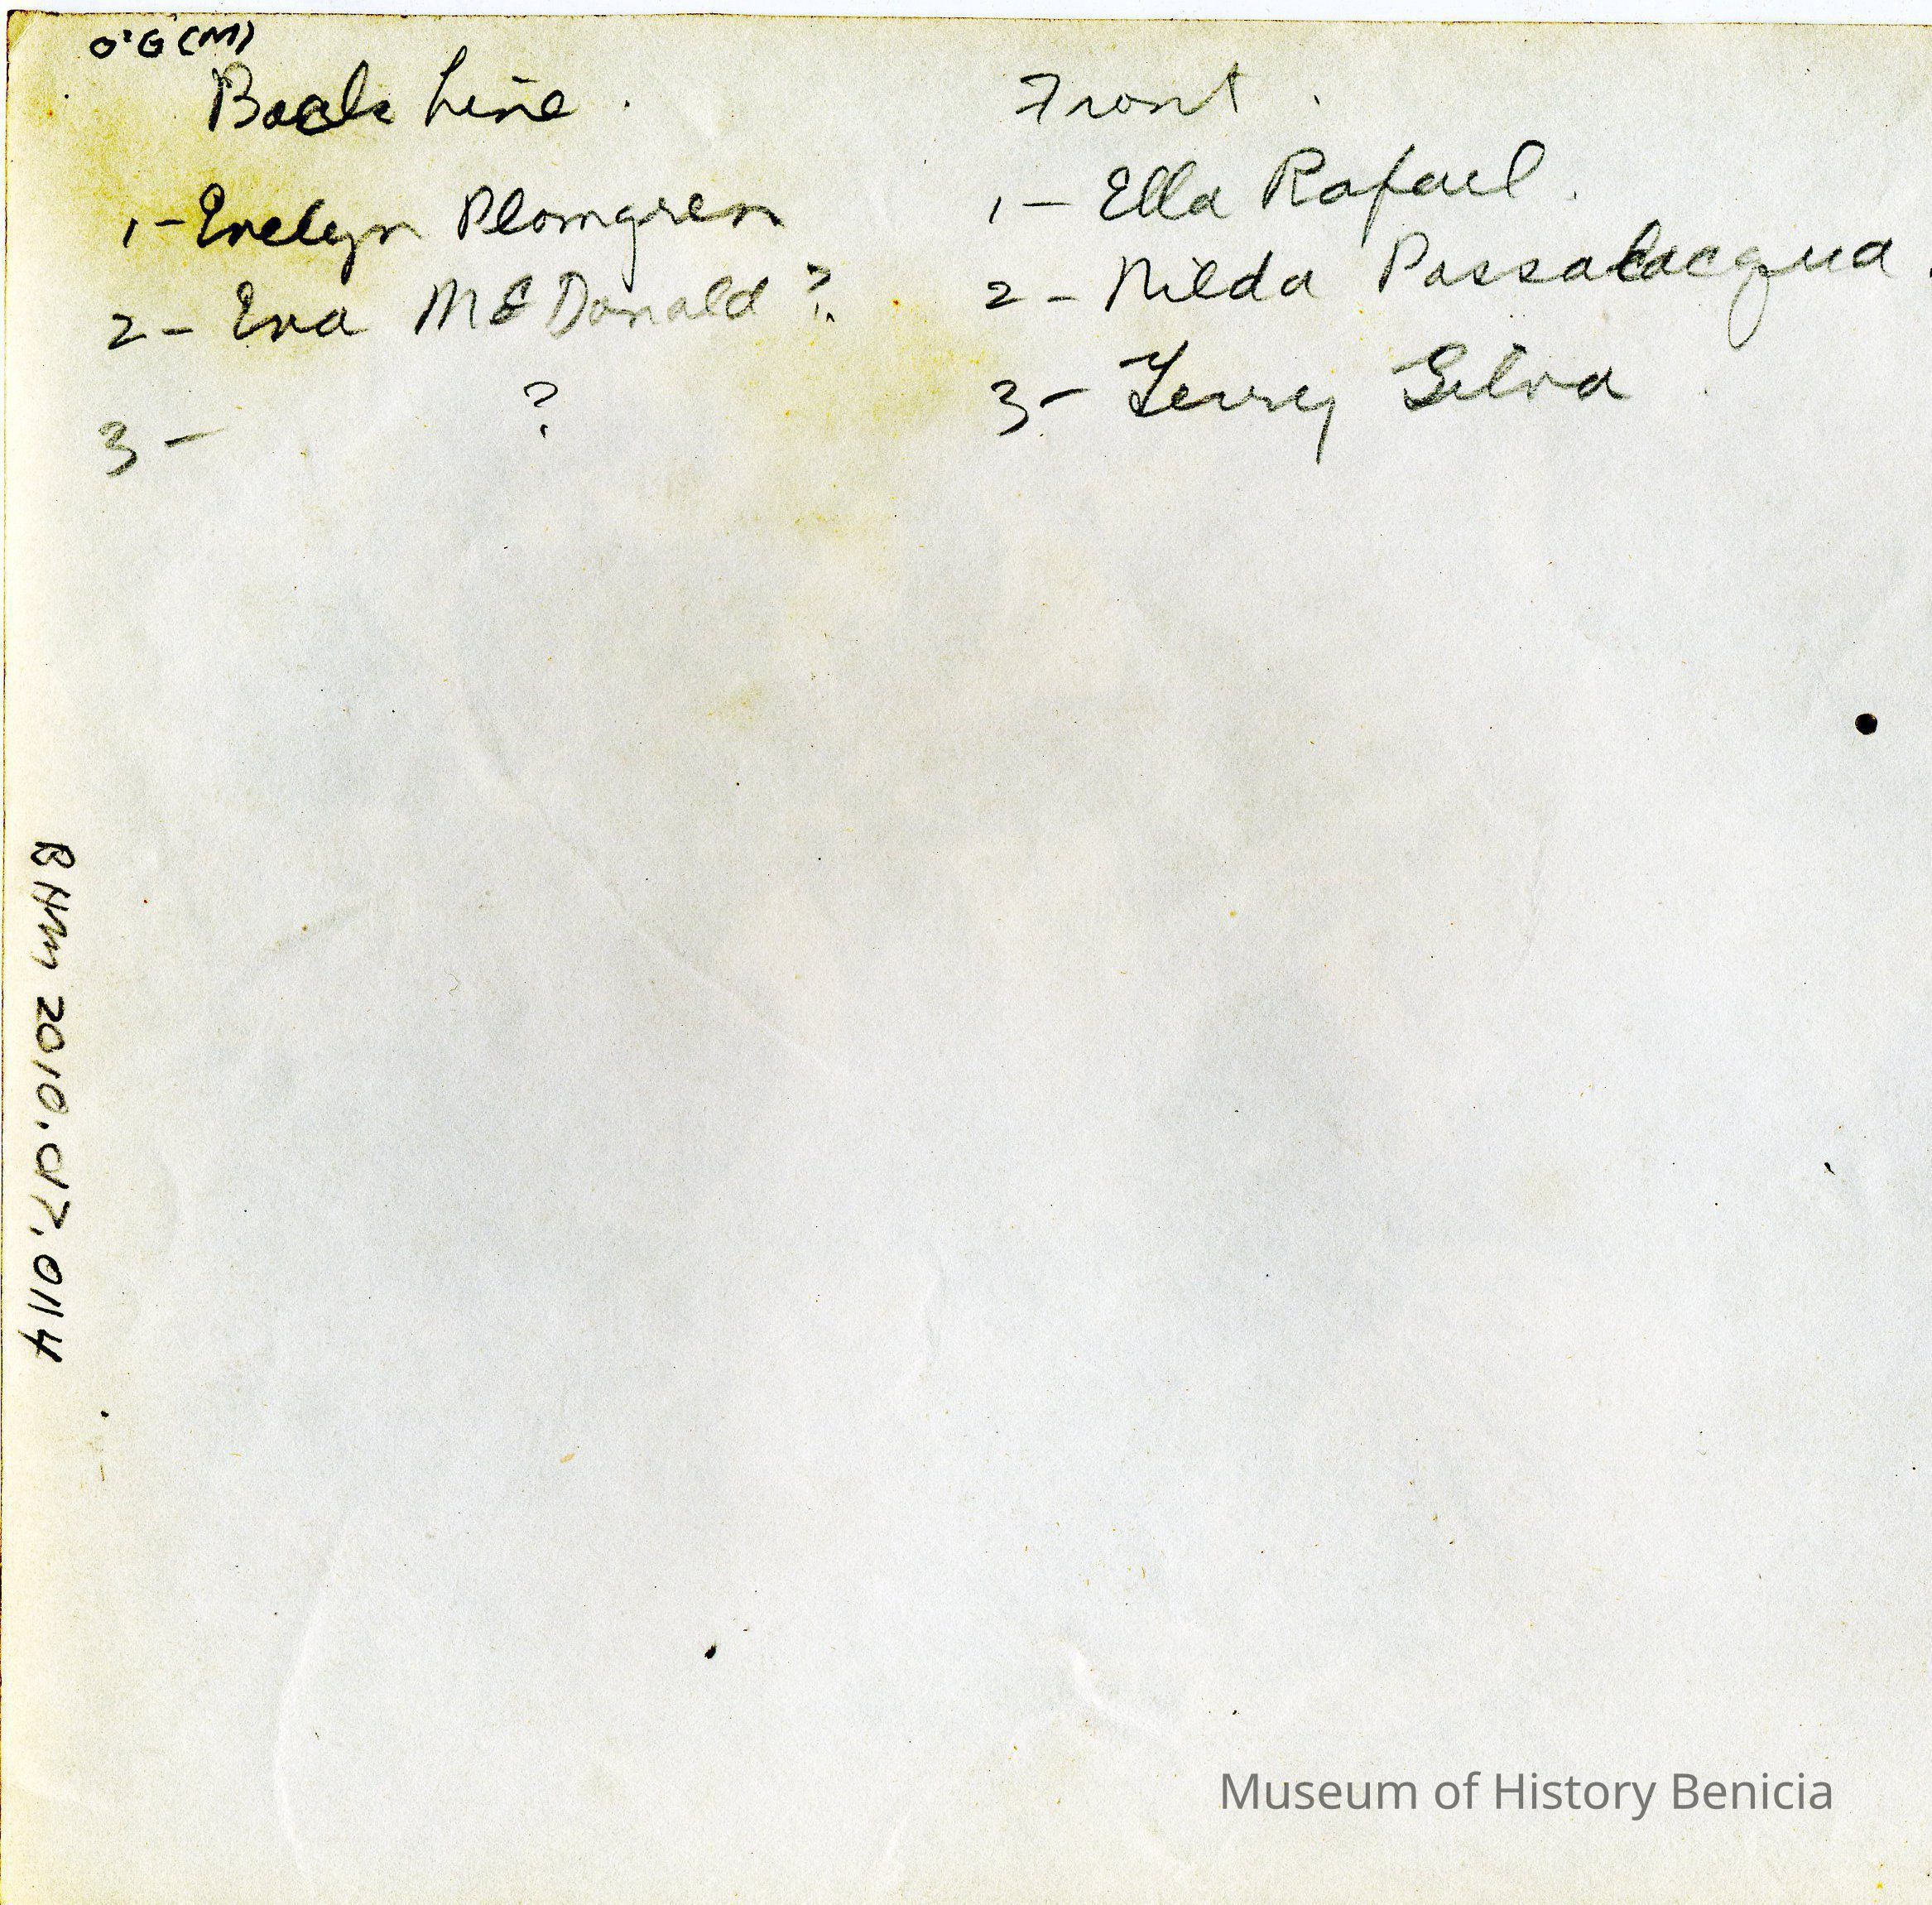 O'G (M)
Back Line.
1- Evelyn Plomgren
2- Eva McDonald?
3- ?
Front.
1- Ella Rafael.
2- Nilda Passalacqua.
3- Terry Silva.
BHM 2010.017.0114
Museum of History Benicia